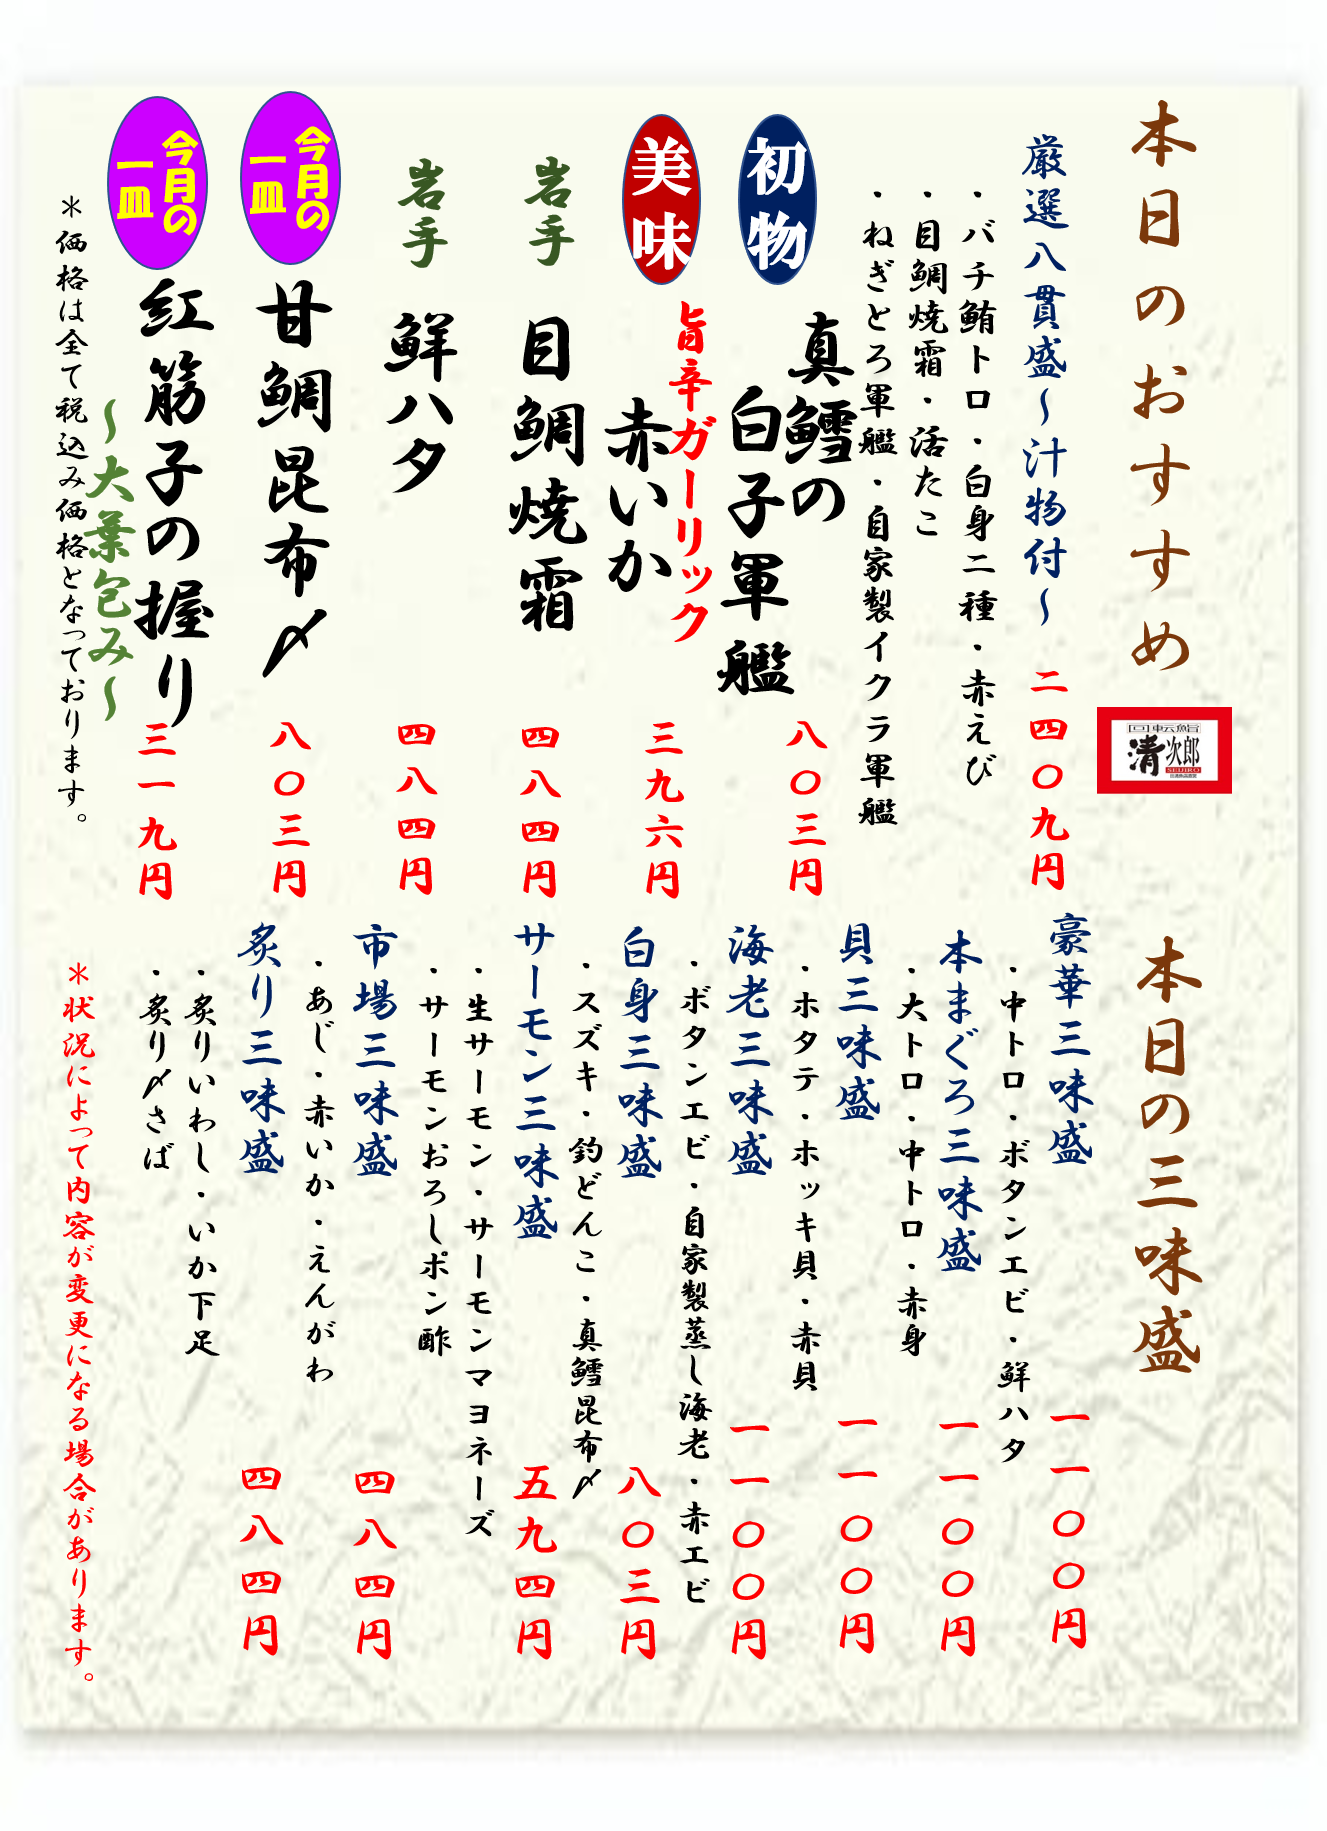 本日のおすすめ
回転鮨
清次郎
SEIJIRO
厳選八貫盛～汁物付～ 二四〇九円
・バチ鮪トロ・白身二種・赤えび
・目鯛焼霜・活たこ
・ねぎとろ軍艦・自家製イクラ軍艦
初物
真鱈の
白子軍艦
八〇三円
美味
旨辛ガーリック
赤いか
三九六円
岩手
目鯛焼霜
四八四円
岩手
鮮ハタ
四八四円
今月の
一皿
甘鯛昆布〆
八〇三円
今月の
一皿
紅筋子の握り
～大葉包み～
三一九円
＊価格は全て税込み価格となっております。
本日の三味盛
豪華三味盛 一一〇〇円
・中トロ・ボタンエビ・鮮ハタ
本まぐろ三味盛 一一〇〇円
・大トロ・中トロ・赤身
貝三味盛 一一〇〇円
・ホタテ・ホッキ貝・赤貝
海老三味盛 一一〇〇円
・ボタンエビ・自家製蒸し海老・赤エビ
白身三味盛 八〇三円
・スズキ・釣どんこ・真鱈昆布〆
サーモン三味盛 五九四円
・生サーモン・サーモンマヨネーズ
・サーモンおろしポン酢
市場三味盛 四八四円
・あじ・赤いか・えんがわ
炙り三味盛 四八四円
・炙りいわし・いか下足
・炙り〆さば
＊状況によって内容が変更になる場合があります。